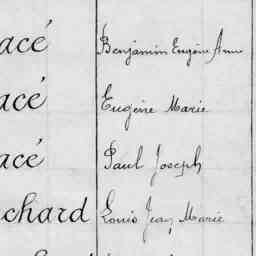 acé Benjamin Eugène Anne
acé Eugène Marie
acé Paul Joseph
chard Louis Jean Marie